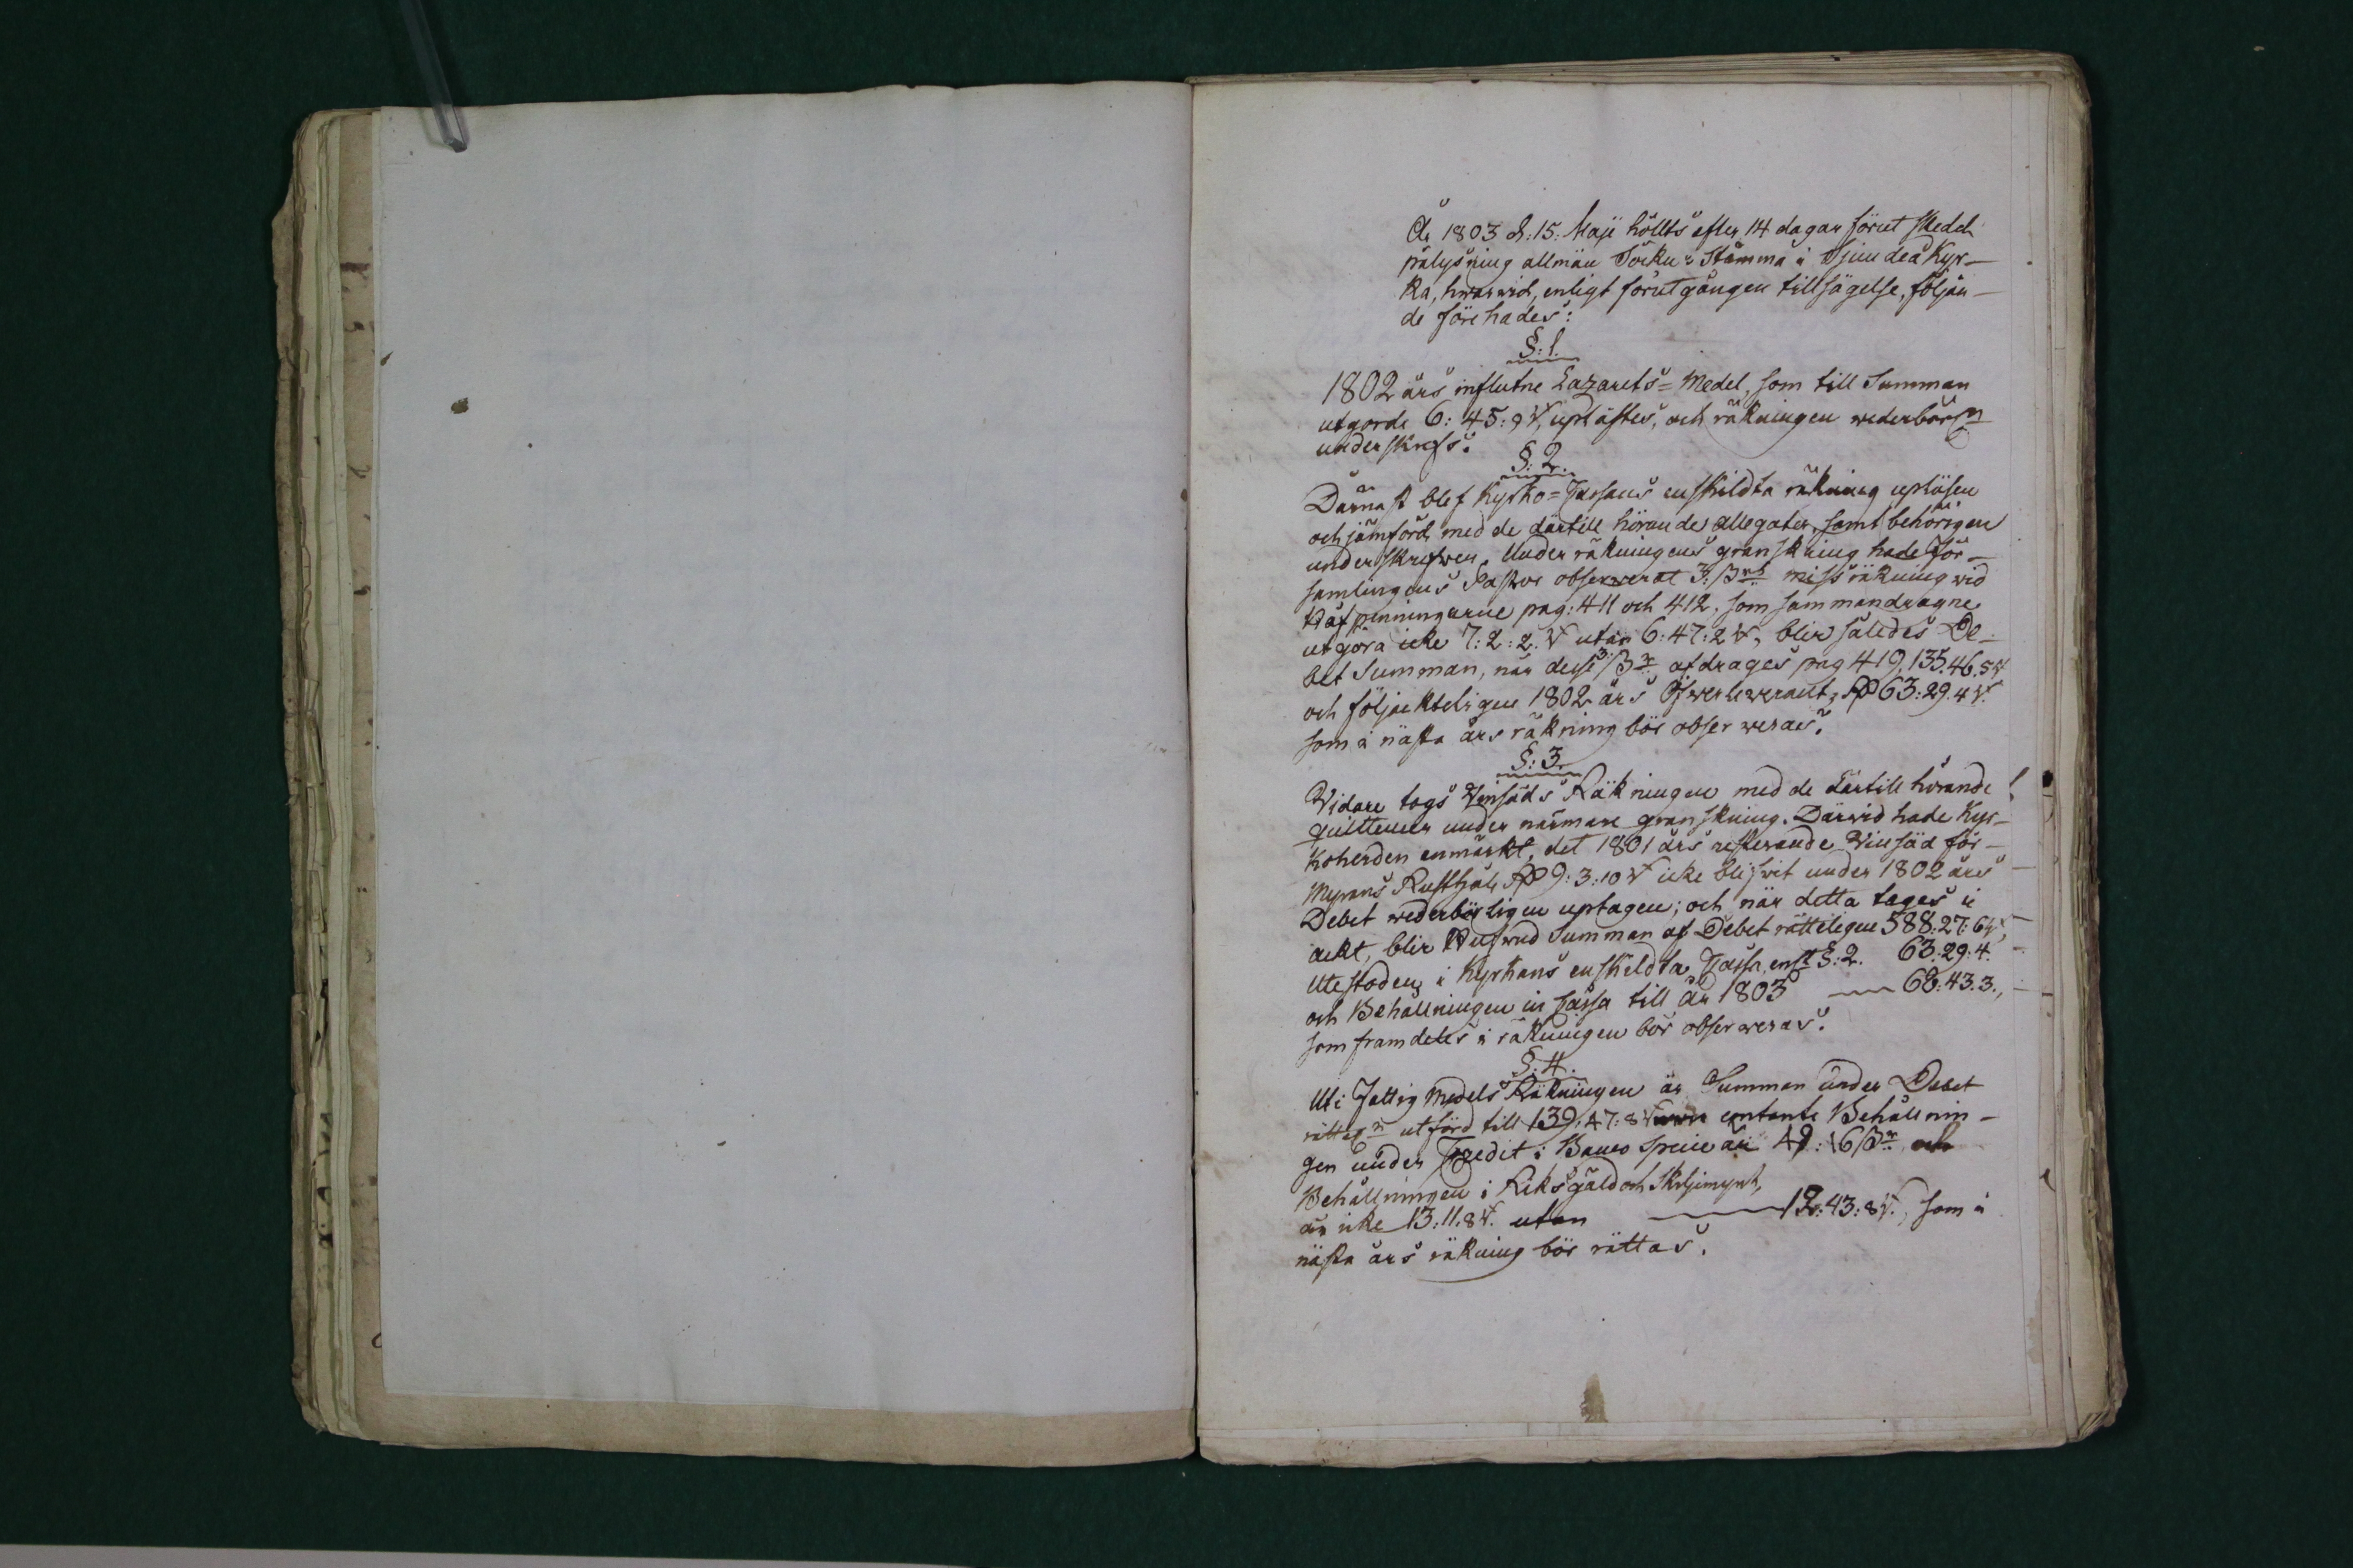 År 1803 d: 15. Maji hölts efter 14 dagar förut skedd
pålysning allmän Sockn-Stämma i Sjundeå Kyr-
ka, hwarwid, enligt förutgången tillsägelse, följan-
de förehades:
§: 1.
1802 års influtne Lazarets=Medel, som till Summan
utgorde 6: 45: 9 uplästes, och räkningen wederbörln
underskrefs.
§: 2.
Därnäst blef Kyrko=Cassans enskildta räkning upläsen
och jämförd med de därtill hörande allegater, samt behörigen
underskrefwen. Under räkningens granskning hade För-
samlingens Pastor observerat 3: ßrs missräkning wid
Håfpenningarne pag: 411 och 412. som sammandragne
utgöra icke 7: 2: 2. utan 6: 47: 2, blir således De-
bet Summan, när desse 3: ßr afdrages pag 419, 135. 46. 5
och följakteligen 1802 års Öfwerleverant, 63: 29. 4.
som i nästa års räkning bör observeras.
§: 3.
Widare togs Winsäds Räkningen med de därtill hörande
quittencer under närmare granskning. Därwid hade Kyr-
koherden anmärkt, det 1801 års resterande Winsäd för
Myrans Rusthåll 9: 3: 10 icke blifwit under 1802 års
Debet wederbörligen uptagen; och när detta tages i
ackt, blir Hufwud Summan af Debet rätteligen 588: 27: 6,
Utestoden i Kyrkans enskildta Cassa, enlt §: 2. 63: 29: 4.
och Behållningen in Cassa till år 1803 68: 43. 3.,
som framdeles i räkningen bör observeras.
§: 4.
Uti Fattig Medels Räkningen är Summan under Debet
rättel utförd till 139. 47: 8 contante Behållnin-
gen under Credit i Banco Specie är 49: 16 ßr och
Behållningen i Riksgäld och Skiljemynt,
är icke 13: 11. 8. utan 12: 43: 8., som i
nästa års räkning bör rättas.